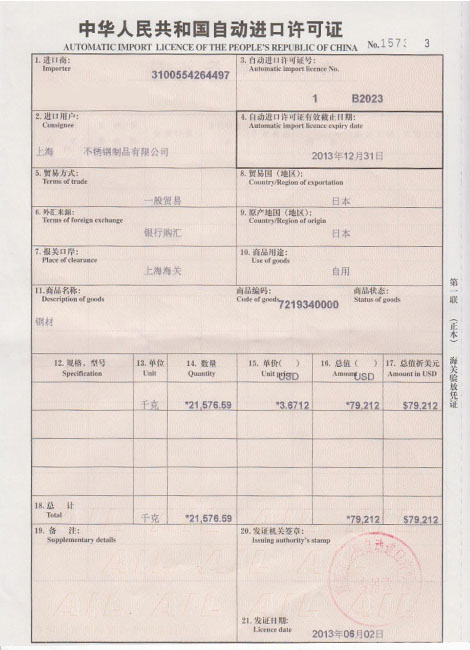 中华人民共和国自动进口许可证
AUTOMATIC IMPORT LICENCE OF THE PEOPLE'S REPUBLIC OF CHINA No. 157 3
1. 进口商: 3100554264497
Importer
3. 自动进口许可证号:
Automatic import licence No.
1 B2023
2. 进口用户:
Consignee
上海 不锈钢制品有限公司
4. 自动进口许可证有效截止日期:
Automatic import licence expiry date
2013年12月31日
5. 贸易方式:
Terms of trade
一般贸易
8. 贸易国（地区）:
Country/Region of exportation
日本
6. 外汇来源:
Terms of foreign exchange
银行购汇
9. 原产地国（地区）:
Country/Region of origin
日本
7. 报关口岸:
Place of clearance
上海海关
10. 商品用途:
Use of goods
自用
11. 商品名称: 商品编码: 商品状态:
Description of goods Code of goods 7219340000 Status of goods
钢材
12. 规格，型号 13. 单位 14. 数量 15. 单价( ) 16. 总值( ) 17. 总值折美元
Specification Unit Quantity Unit price USD Amount USD Amount in USD
千克 *21,576.59 *3.6712 *79,212 $79,212
18. 总 计
Total 千克 *21,576.59 *79,212 $79,212
19. 备 注:
Supplementary details
20. 发证机关签章:
Issuing authority's stamp
21. 发证日期:
Licence date 2013年06月02日
第一联（正本）海关验放凭证